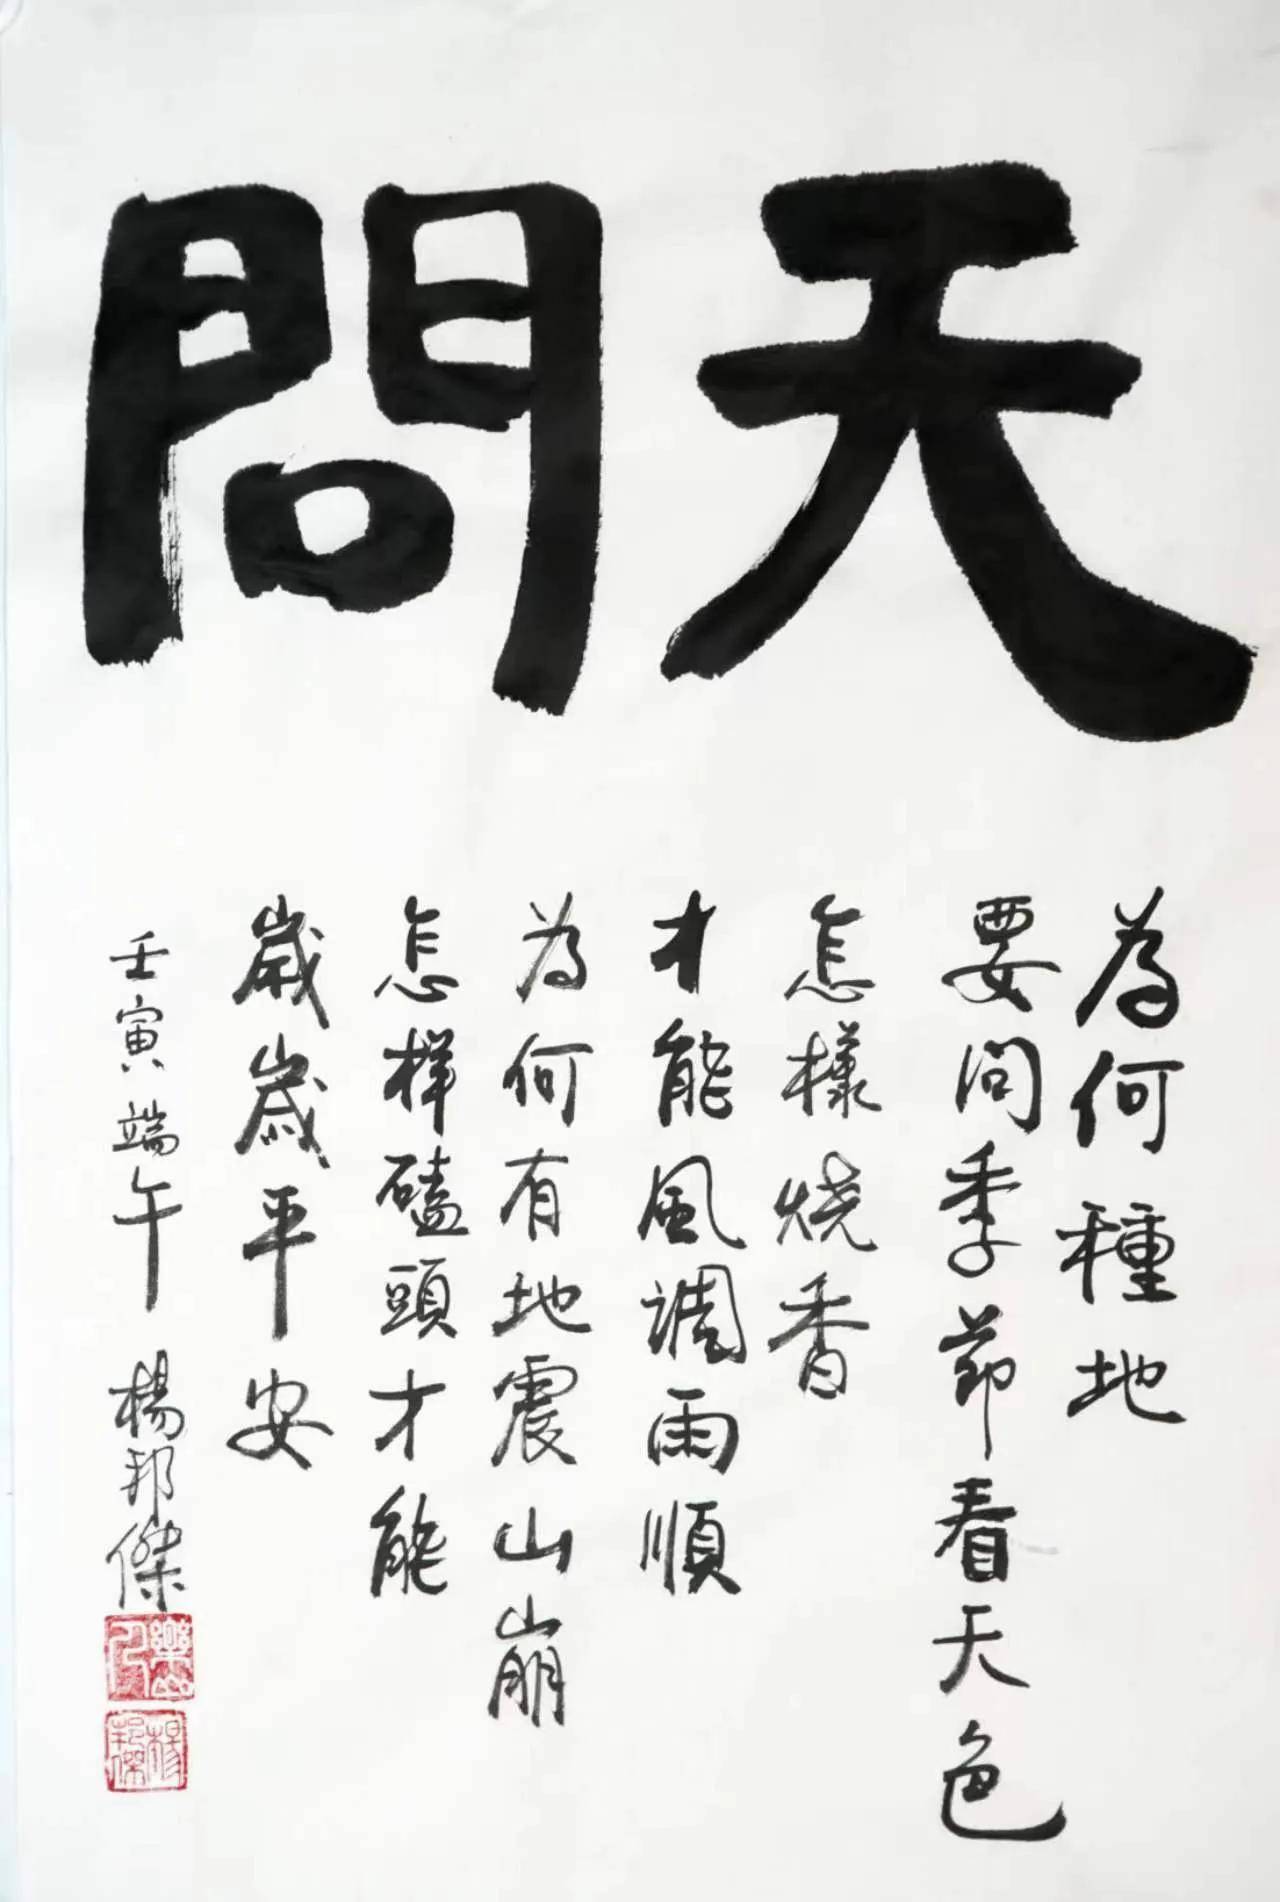 天問
為何種地
要问季節看天色
怎樣烧香
才能風調雨順
為何有地震山崩
怎样磕頭才能
歲歲平安
壬寅端午 楊邦傑
楊邦傑